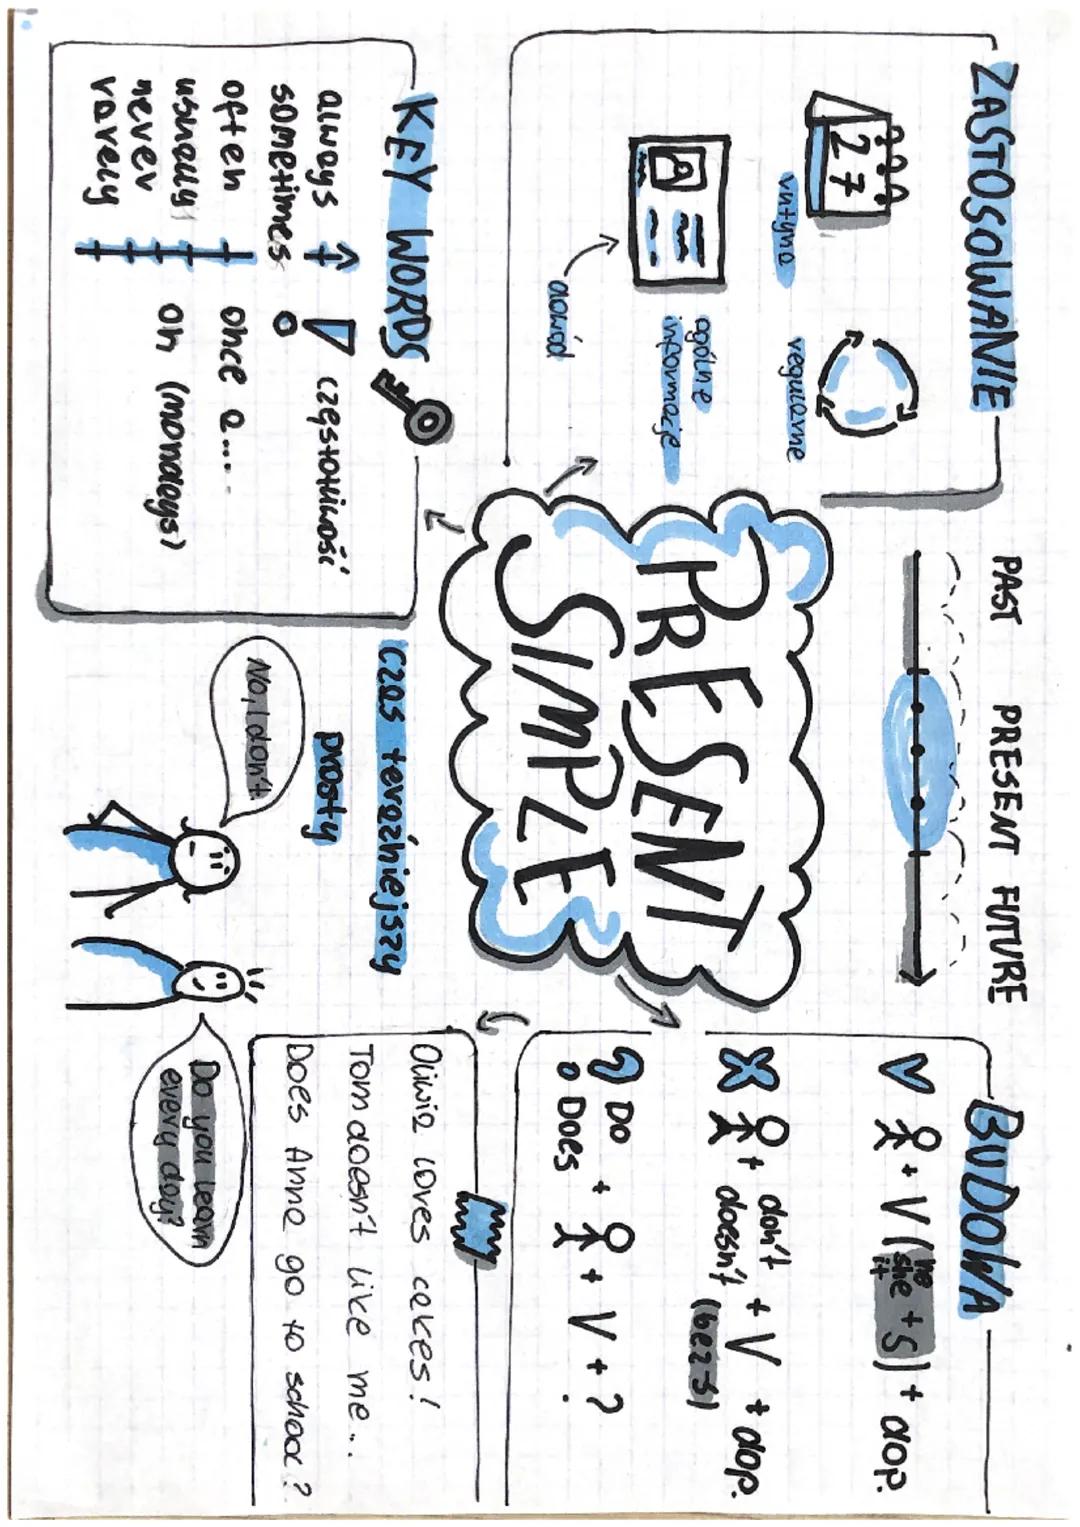 ZASTOSOWANIE
27
rutyna
regularne
ogólne
informacje
dowód
PAST PRESENT FUTURE
BUDOWA
V + V (he
she + S) + dop.
it
X + don't + V + dop.
doesn't (bez s)
? Do + + V + ?
Does
PRESENT
SIMPLE
Czas teraźniejszy
prosty
KEY WORDS
always
sometimes
often
usually
never
rarely
częstotliwość
once a...
on (mondays)
No, I don't
Do you learn
every day?
Oliwia loves cakes!
Tom doesn't like me...
Does Anna go to school?